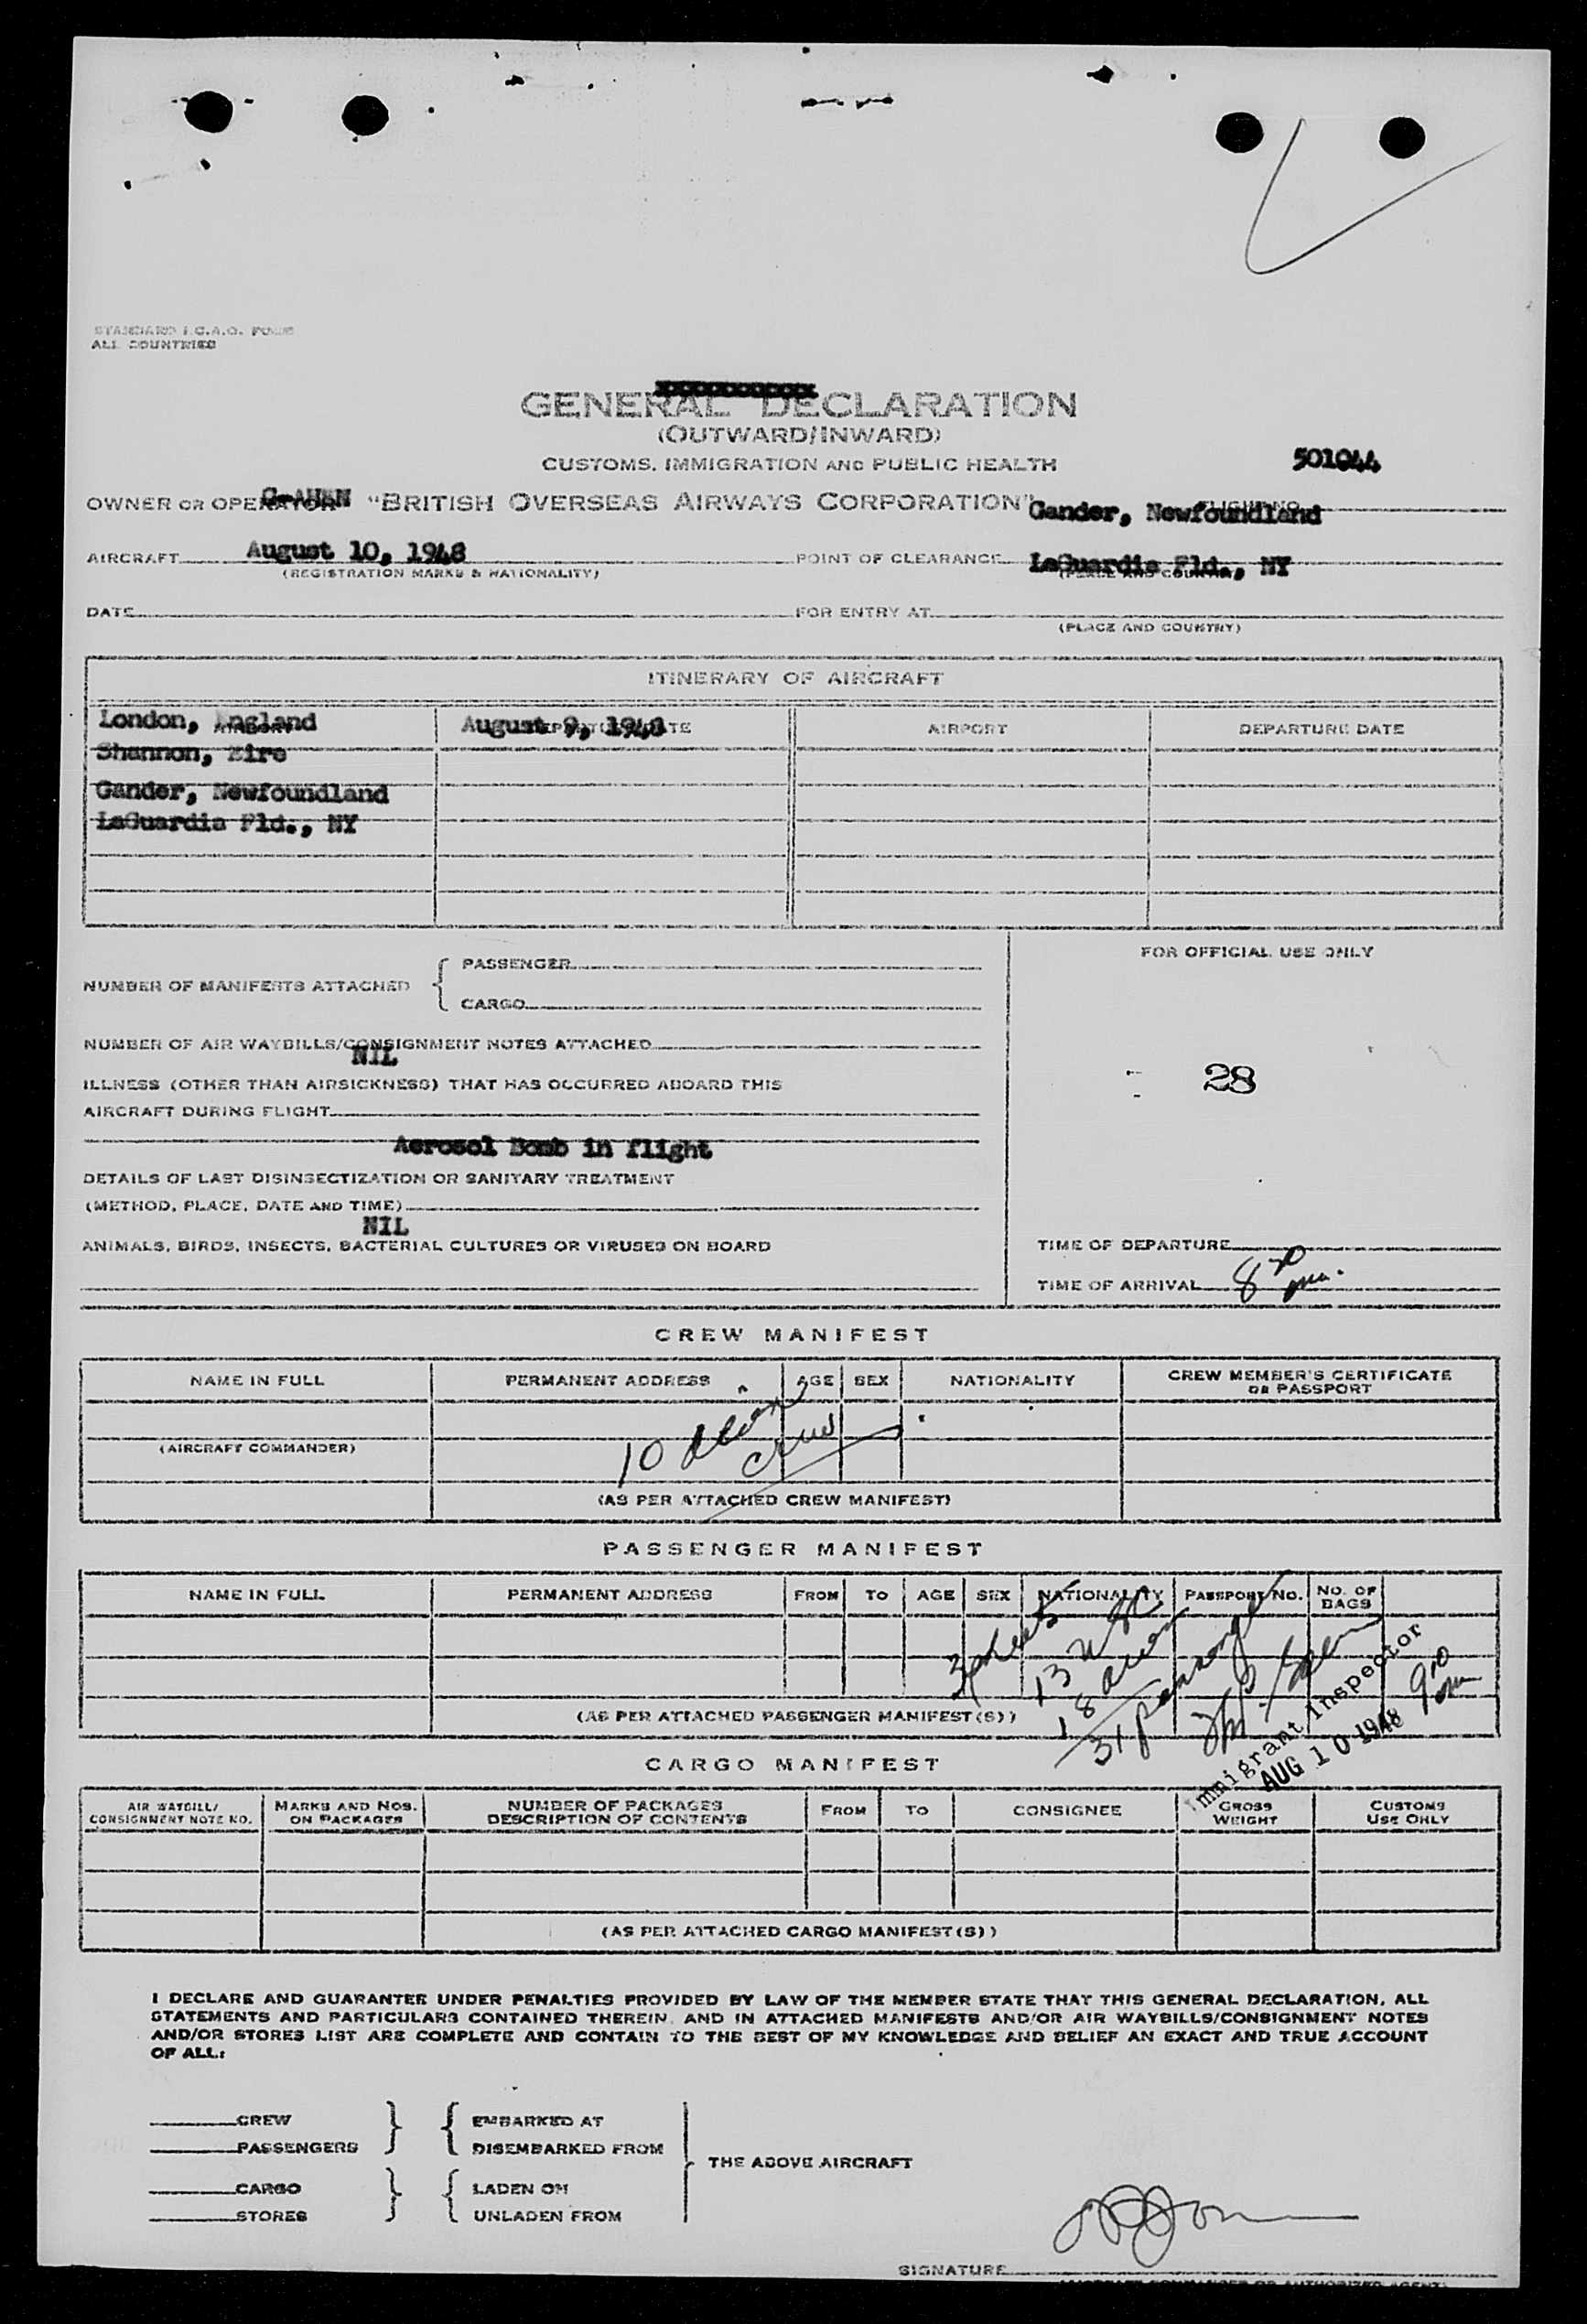 STANDARD I.C.A.O. FORM
ALL COUNTRIES
GENERAL DECLARATION
(OUTWARD/INWARD)
CUSTOMS, IMMIGRATION AND PUBLIC HEALTH
501044
OWNER OR OPERATOR "BRITISH OVERSEAS AIRWAYS CORPORATION" FLIGHT NO.
Gander, Newfoundland
AIRCRAFT August 10, 1948 POINT OF CLEARANCE LaGuardia Fld., NY
(REGISTRATION MARKS & NATIONALITY) (PLACE AND COUNTRY)
DATE FOR ENTRY AT
(PLACE AND COUNTRY)
ITINERARY OF AIRCRAFT
AIRPORT DEPARTURE DATE AIRPORT DEPARTURE DATE
London, England August 9, 1948
Shannon, Eire
Gander, Newfoundland
LaGuardia Fld., NY
FOR OFFICIAL USE ONLY
NUMBER OF MANIFESTS ATTACHED
PASSENGER
CARGO
NUMBER OF AIR WAYBILLS/CONSIGNMENT NOTES ATTACHED
NIL
28
ILLNESS (OTHER THAN AIRSICKNESS) THAT HAS OCCURRED ABOARD THIS
AIRCRAFT DURING FLIGHT
Aerosol Bomb in flight
DETAILS OF LAST DISINSECTIZATION OR SANITARY TREATMENT
(METHOD, PLACE, DATE AND TIME)
NIL
ANIMALS, BIRDS, INSECTS, BACTERIAL CULTURES OR VIRUSES ON BOARD
TIME OF DEPARTURE
TIME OF ARRIVAL
CREW MANIFEST
NAME IN FULL PERMANENT ADDRESS AGE SEX NATIONALITY CREW MEMBER'S CERTIFICATE
OR PASSPORT
(AIRCRAFT COMMANDER)
10 alien
crew
(AS PER ATTACHED CREW MANIFEST)
PASSENGER MANIFEST
NAME IN FULL PERMANENT ADDRESS FROM TO AGE SEX NATIONALITY PASSPORT No. NO. OF
BAGS
3 sheets
13 USC
18 alien
31 passengers
Immigrant Inspector
AUG 10 1948
(AS PER ATTACHED PASSENGER MANIFEST(S))
CARGO MANIFEST
AIR WAYBILL/
CONSIGNMENT NOTE NO.
MARKS AND NOS.
ON PACKAGES
NUMBER OF PACKAGES
DESCRIPTION OF CONTENTS
FROM TO CONSIGNEE
GROSS
WEIGHT
CUSTOMS
USE ONLY
(AS PER ATTACHED CARGO MANIFEST(S))
I DECLARE AND GUARANTEE UNDER PENALTIES PROVIDED BY LAW OF THE MEMBER STATE THAT THIS GENERAL DECLARATION, ALL
STATEMENTS AND PARTICULARS CONTAINED THEREIN, AND IN ATTACHED MANIFESTS AND/OR AIR WAYBILLS/CONSIGNMENT NOTES
AND/OR STORES LIST ARE COMPLETE AND CONTAIN TO THE BEST OF MY KNOWLEDGE AND BELIEF AN EXACT AND TRUE ACCOUNT
OF ALL:
CREW
PASSENGERS
EMBARKED AT
DISEMBARKED FROM
THE ABOVE AIRCRAFT
CARGO
STORES
LADEN ON
UNLADEN FROM
SIGNATURE
(AIRCRAFT COMMANDER OR AUTHORIZED AGENT)